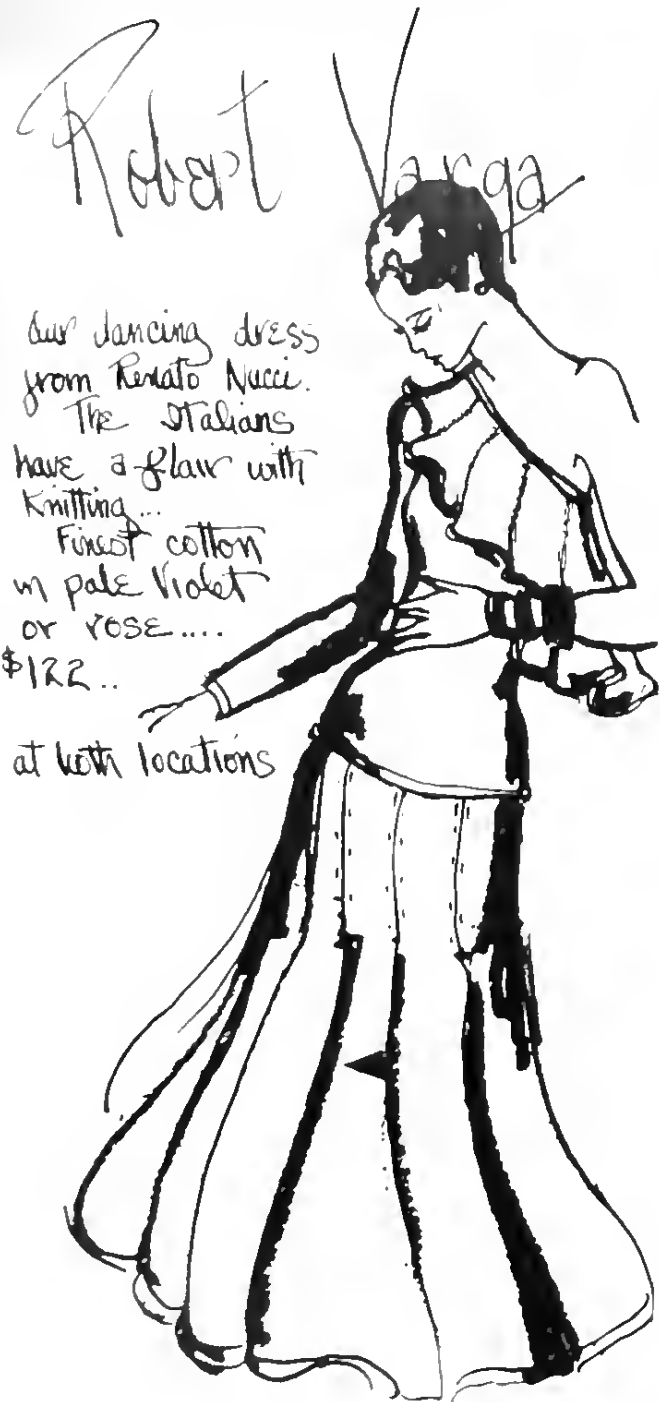 Robert Varga
our dancing dress
from Renato Nucci.
The Italians
have a flair with
Knitting...
Finest cotton
in pale violet
or rose....
$122..
at both locations